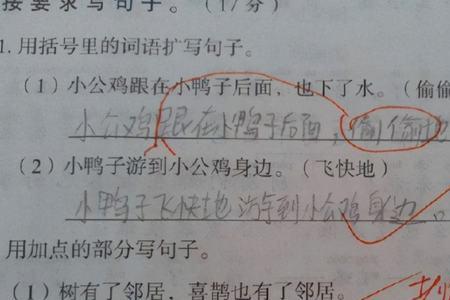 按要求写句子。(17分)
1. 用括号里的词语扩写句子。
(1)小公鸡跟在小鸭子后面,也下了水。(偷偷
小公鸡跟在小鸭子后面,偷偷地
(2)小鸭子游到小公鸡身边。(飞快地)
小鸭子飞快地游到小公鸡身边。
用加点的部分写句子。
(1)树有了邻居,喜鹊也有了邻居。